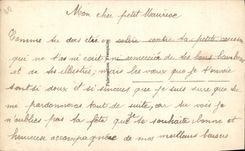 Mon cher petit Maurice
Comme tu dois être colère contre ta petite cousine
qui ne t'as ni carte ni remercié de tes bons bonbons
et de ses lettres, mais les vœux que je t'envoie
sont si doux et si sincères que je suis sûre que tu
me pardonneras tout de suite, car tu vois je
n'oublies pas ta fête que je te souhaite bonne et
heureuse accompagnée de mes meilleurs baisers